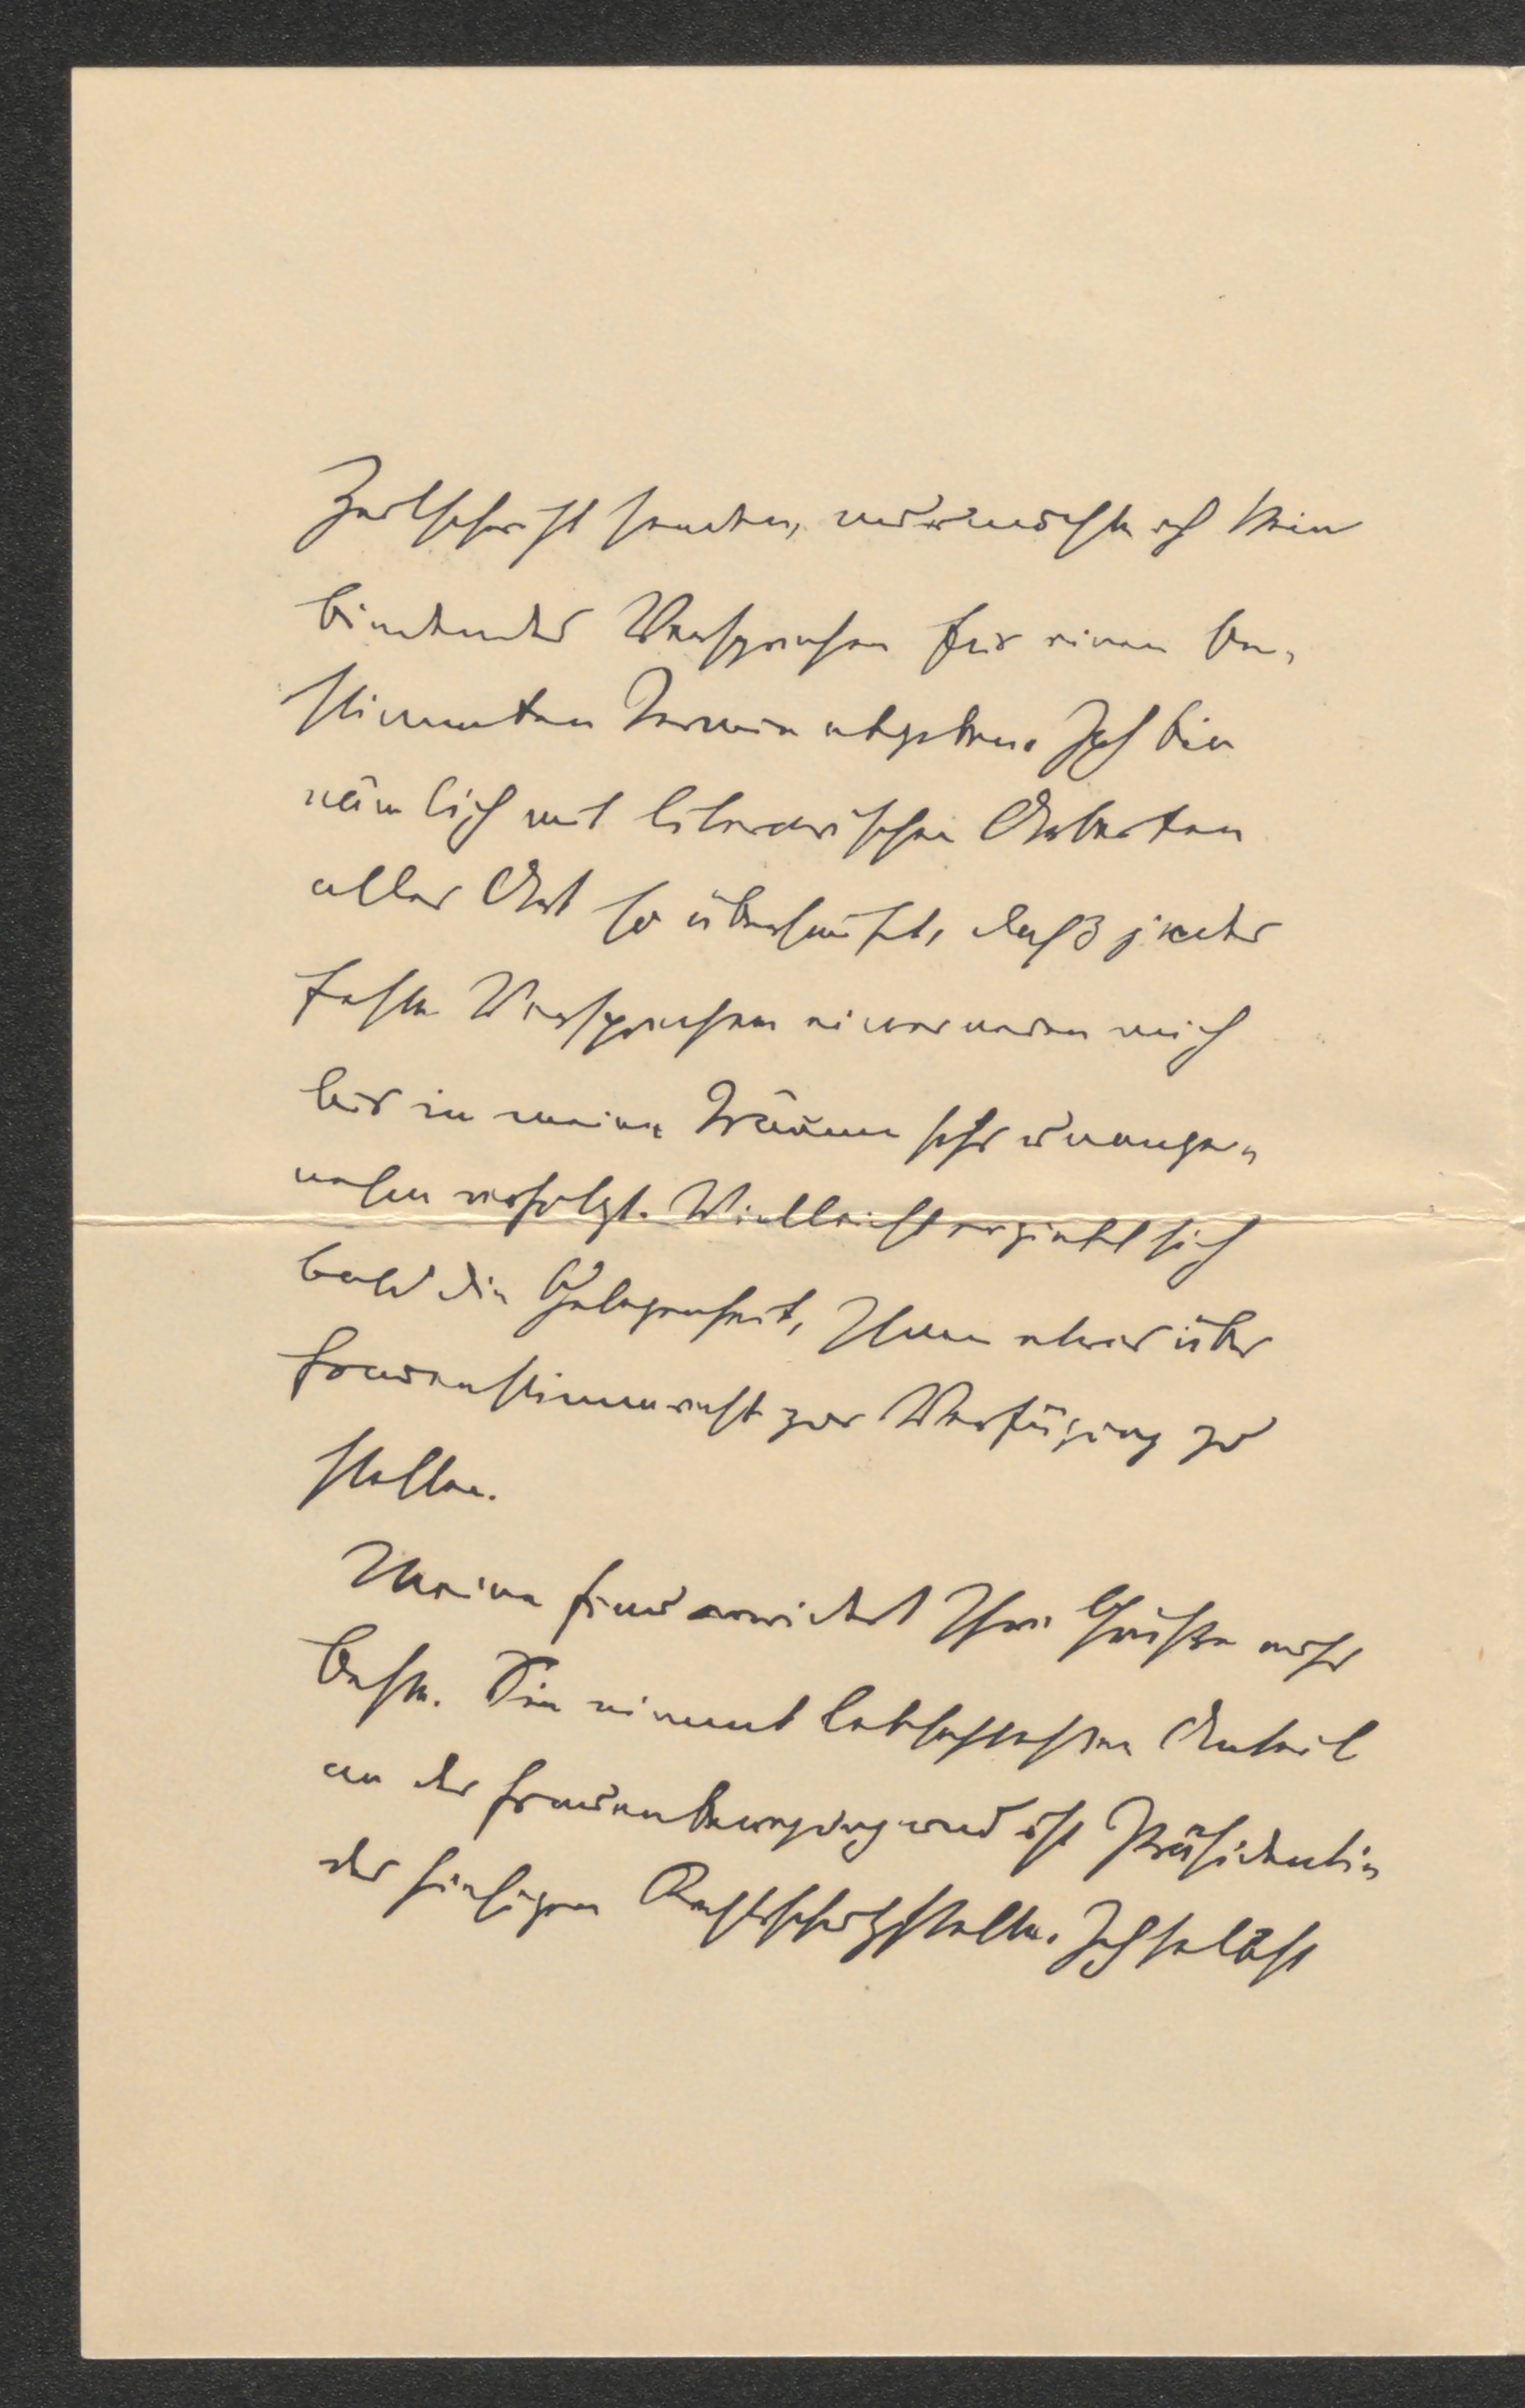 Zeitschrift senden, nur möchte ich kein
bindendes Versprechen für einen be-
stimmten Termin abgeben. Ich bin
nämlich mit literarischen Arbeiten
aller Art so überhäuft, daß jedes
feste Versprechen einerseren mich
bis in meine Träume sehr unange-
nehm verfolgt. Vielleicht ergiebt sich
bald die Gelegenheit, Ihnen etwas über
Frauenstimmrecht zur Verfügung zu
stellen.
Meine Frau erwidert Ihre Grüße aufs
Beste. Sie nimmt lebhaftesten Anteil
an der Frauenbewegung und ist Präsidentin
der hiesigen Rechtsschutzstelle. Ich selbst